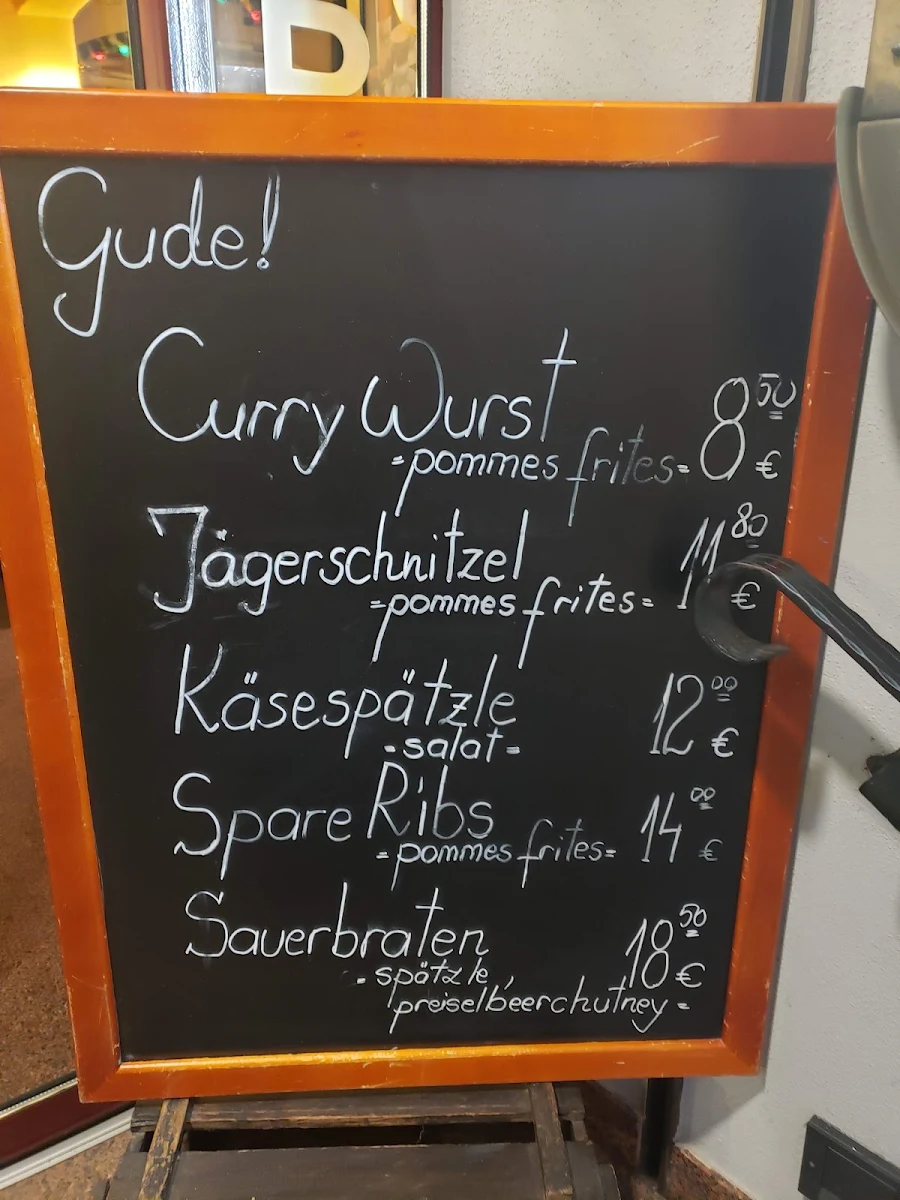 Gude!
Curry Wurst 8 50 €
=pommes frites=
Jägerschnitzel 11 80 €
=pommes frites=
Käsespätzle 12 00 €
-salat=
Spare Ribs 14 00 €
=pommes frites=
Sauerbraten 18 50 €
-spätzle,
preiselbeerchutney=